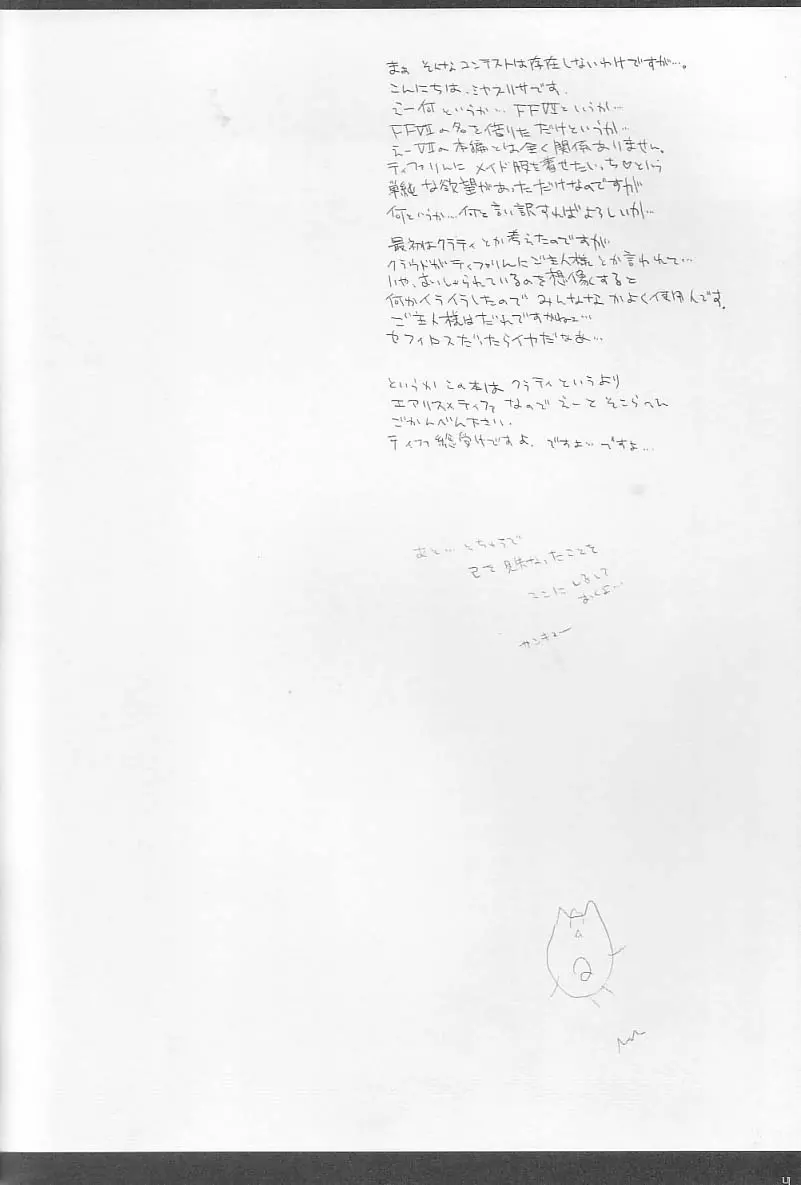 まぁ そんなコンテストは存在しないわけですが…。
こんにちは、ミヤスリサです.
えー何というか… FFⅦというか…
FFⅦの名を借りただけというか…
えーⅦの本編とは全く関係ありません。
ティファりんに メイド服を着せたいっち♡という
単純な欲望があっただけなのですが
何というか…何と言い訳すればよろしいか…
最初はクラティとか考えたのですが
クラウドがティファりんにご主人様とか言われて…
いや、おいしゃられているのを想像すると
何かイライラしたので みんななかよく使用人です.
ご主人様はだれですかねェ…
セフィロスだったらイヤだなあ…
というか この本は クラティというより
エアリス×ティファ なので えーと そこらへん
ごかんべん下さい.
ティファ総受けですよ. ですよ… ですよ…
あと… とちゅうで
己を見失なったことを
ここに しるして
おくよ…
サンキュー
4